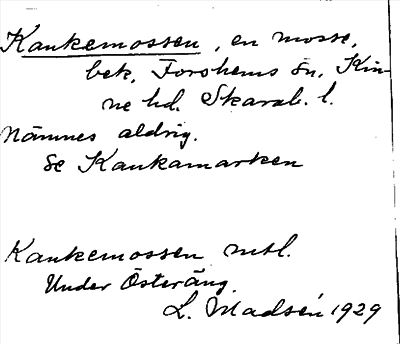 Kankemossen, en mosse,
bek. Forshems sn, Kin-
ne hd. Skarab. l.
Nämnes aldrig.
Se Kankamarken
Kankemossen mtl.
Under Österäng.
L. Madsén 1929